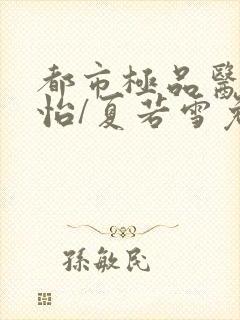 都市極品醫
怡/夏若雪
孫敏民